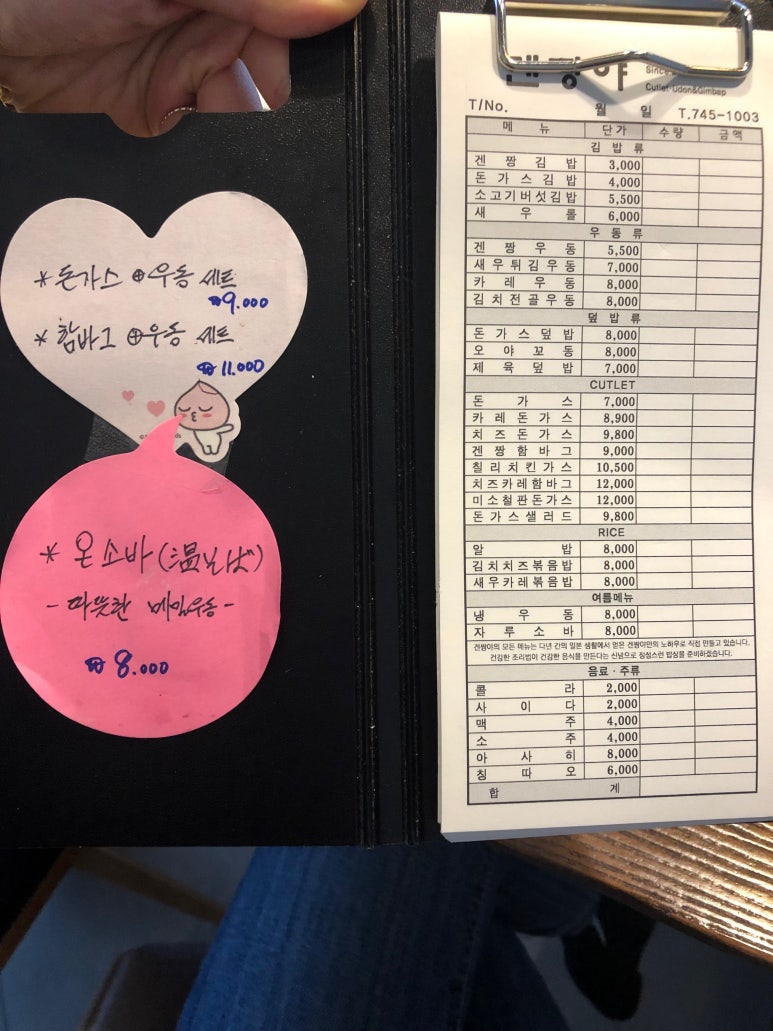 *돈가스 ⊕우동 세트
₩9.000
*함바그 ⊕우동 세트
₩11.000
* 온소바 (温そば)
- 따뜻한 메밀우동 -
₩8.000
Since
Cutlet·Udon&Gimbap
T/No. 월 일 T.745-1003
메 뉴 단가 수량 금액
김 밥 류
겐짱김밥 3,000
돈가스김밥 4,000
소고기버섯김밥 5,500
새우롤 6,000
우 동 류
겐짱우동 5,500
새우튀김우동 7,000
카레우동 8,000
김치전골우동 8,000
덮 밥 류
돈가스덮밥 8,000
오야꼬동 8,000
제육덮밥 7,000
CUTLET
돈가스 7,000
카레돈가스 8,900
치즈돈가스 9,800
겐짱함바그 9,000
칠리치킨가스 10,500
치즈카레함바그 12,000
미소철판돈가스 12,000
돈가스샐러드 9,800
RICE
알밥 8,000
김치치즈볶음밥 8,000
새우카레볶음밥 8,000
여름메뉴
냉우동 8,000
자루소바 8,000
겐짱야의 모든 메뉴는 다년 간의 일본 생활에서 얻은 겐짱야만의 노하우로 직접 만들고 있습니다.
건강한 조리법이 건강한 음식을 만든다는 신념으로 정성스런 밥심을 준비하겠습니다.
음료 · 주류
콜라 2,000
사이다 2,000
맥주 4,000
소주 4,000
아사히 8,000
칭따오 6,000
합 계